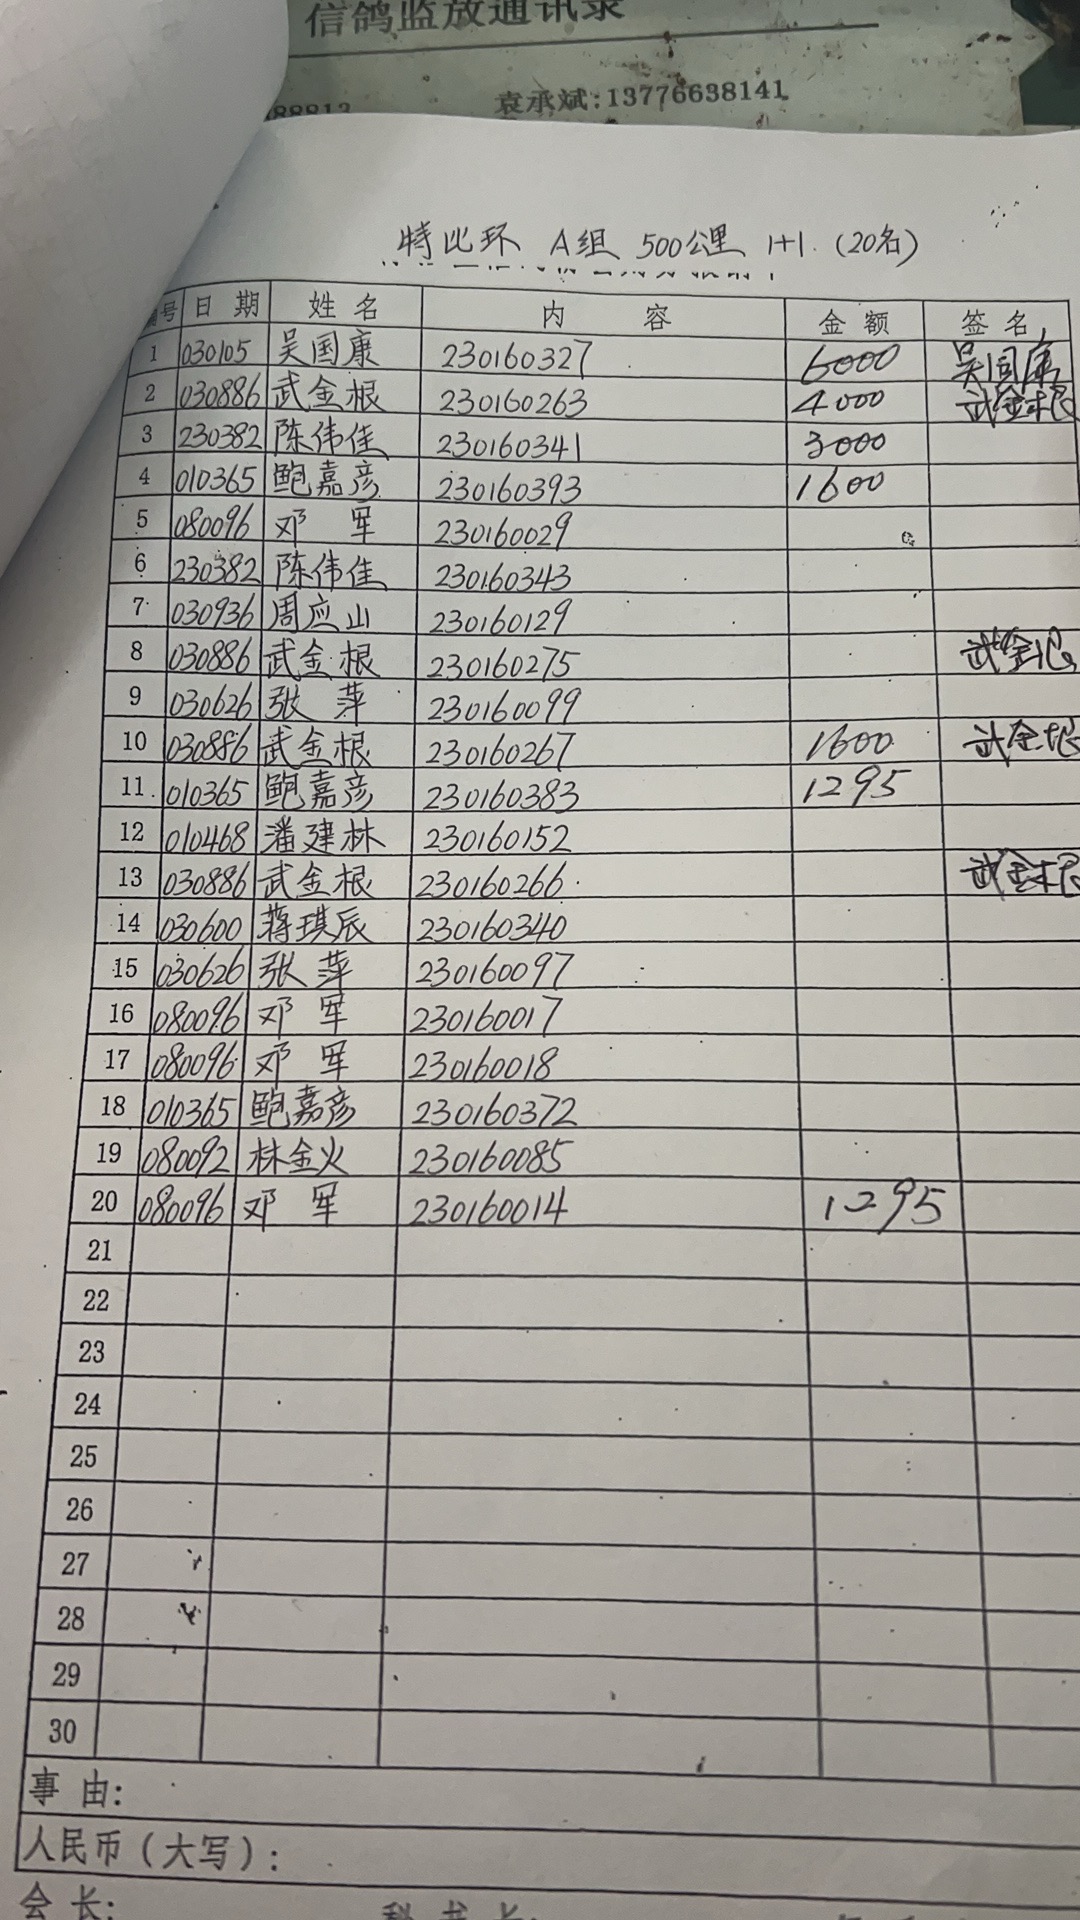 信鸽监放通讯录
88813
袁承斌:13776638141
特比环 A组 500公里 1+1.(20名)
号 日 期 姓 名 内 容 金 额 签 名
1 030105 吴国康 230160327 6000 吴国康
2 030886 武金根 230160263 4000 武金根
3 230382 陈伟佳 230160341 3000
4 010365 鲍嘉彦 230160393 1600
5 080096 邓 军 230160029
6 230382 陈伟佳 230160343
7 030936 周应山 230160129
8 030886 武金根 230160275 武金根
9 030626 张 萍 230160099
10 030886 武金根 230160267 1600 武金根
11 010365 鲍嘉彦 230160383 1295
12 010468 潘建林 230160152
13 030886 武金根 230160266 武金根
14 030600 蒋琪辰 230160340
15 030626 张 萍 230160097
16 080096 邓 军 230160017
17 080096 邓 军 230160018
18 010365 鲍嘉彦 230160372
19 080092 林金火 230160085
20 080096 邓 军 230160014 1295
21
22
23
24
25
26
27
28
29
30
事 由:
人民币(大写):
会 长: 秘 书 长: